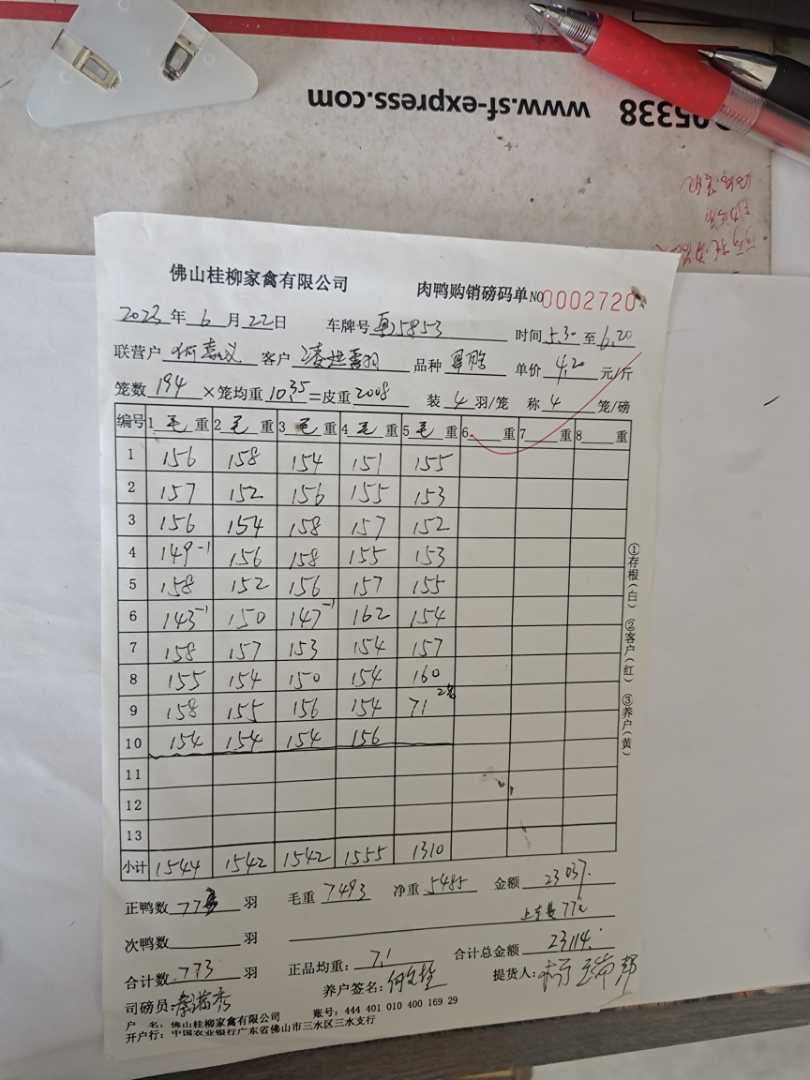 www.sf-express.com
佛山桂柳家禽有限公司
肉鸭购销磅码单 NO 0002720
2023年6月22日 车牌号 5853 时间 5.30 至 6.20
联营户 客户 品种 单价 4.20 元/斤
笼数 194 ×笼均重 10.35 =皮重 2008 装 4 羽/笼 称 4 笼/磅
编号 1 毛 重 2 毛 重 3 毛 重 4 毛 重 5 毛 重 6 重 7 重 8 重
1 156 158 154 151 155
2 157 152 156 155 153
3 156 154 158 157 152
4 149-1 156 158 155 153
5 158 152 156 157 155
6 143-1 150 147-1 162 154
7 158 157 153 154 157
8 155 154 150 154 160
9 158 155 156 154 71
10 154 154 154 156
11
12
13
小计 1544 1542 1542 1555 1310
①存根(白) ②客户(红) ③养户(黄)
正鸭数 773 羽 毛重 7493 净重 5485 金额 23037.
次鸭数 羽
合计数 773 羽 正品均重: 7.1 合计总金额 23114.
司磅员: 养户签名: 提货人:
户 名: 佛山桂柳家禽有限公司 账号: 444 401 010 400 169 29
开户行: 中国农业银行广东省佛山市三水区三水支行